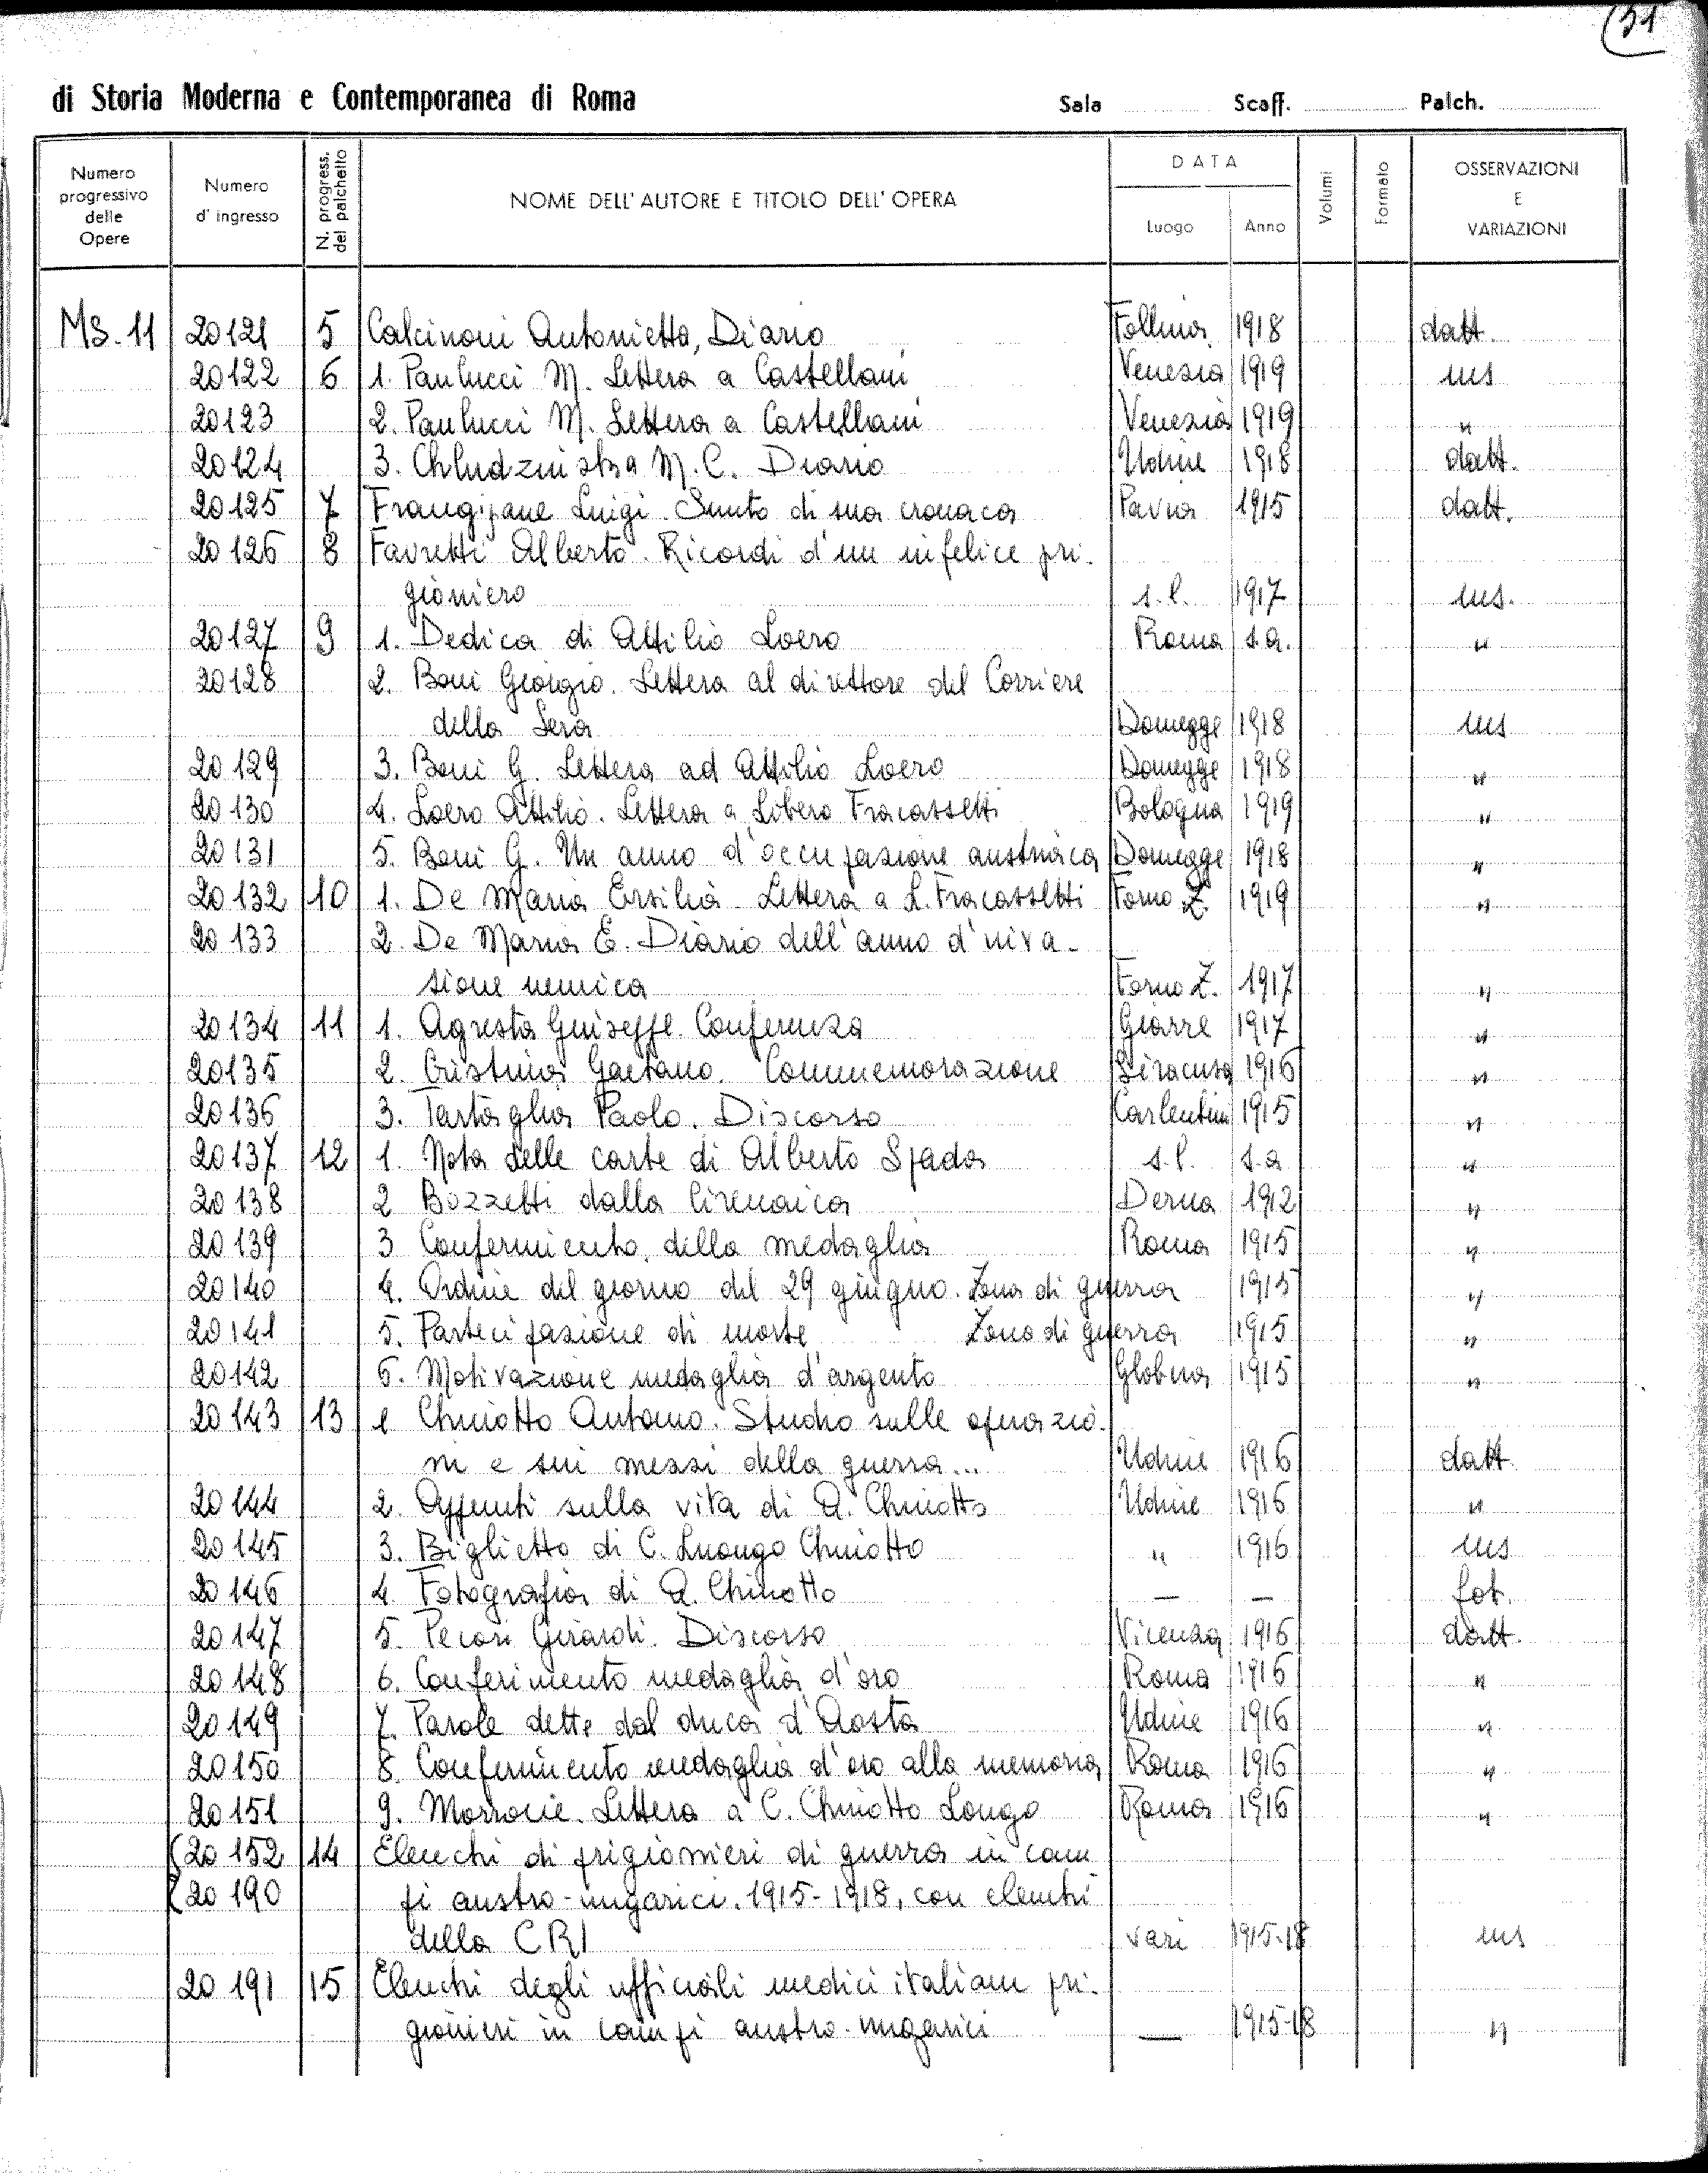 (51
di Storia Moderna e Contemporanea di Roma Sala Scaff. Palch.
Numero progressivo delle Opere
Numero d'ingresso
N. progress. del palchetto
NOME DELL'AUTORE E TITOLO DELL'OPERA
DATA
Luogo
Anno
Volumi
Formato
OSSERVAZIONI E VARIAZIONI
MS. 11 20121 5 Calcinoni Antonietta, Diario Follina 1918 datt.
20122 6 1. Paulucci M. Lettera a Castellani Venezia 1919 ms
20123 2. Paulucci M. Lettera a Castellani Venezia 1919 "
20124 3. Chludzinska M. C. Diario Udine 1918 datt.
20125 7 Frangipane Luigi. Sunto di sua cronaca Pavia 1915 datt.
20126 8 Favretti Alberto. Ricordi d'un infelice pri-
gioniero s.l. 1917 ms.
20127 9 1. Dedica di Attilio Loero Roma s.a. "
20128 2. Boni Giorgio. Lettera al direttore del Corriere
della Sera Domegge 1918 ms
20129 3. Boni G. Lettera ad Attilio Loero Domegge 1918 "
20130 4. Loero Attilio. Lettera a Libero Fracassetti Bologna 1919 "
20131 5. Boni G. Un anno d'occupazione austriaca Domegge 1918 "
20132 10 1. De Maria Ersilia. Lettera a L. Fracassetti Forno Z. 1919 "
20133 2. De Maria E. Diario dell'anno d'inva-
sione nemica Forno Z. 1917 "
20134 11 1. Agresta Guiseppe. Conferenza Giarre 1917 "
20135 2. Cristina Gaetano. Commemorazione Siracusa 1916 "
20136 3. Tartaglia Paolo. Discorso Carlentini 1915 "
20137 12 1. Nota delle carte di Alberto Spada s.l. s.a "
20138 2 Bozzetti dalla Cirenaica Derna 1912 "
20139 3 Conferimento della medaglia Roma 1915 "
20140 4. Ordine del giorno del 29 giugno. Zona di guerra 1915 "
20141 5. Partecipazione di morte Zona di guerra 1915 "
20142 6. Motivazione medaglia d'argento Globna 1915 "
20143 13 1 Chinotto Antonio. Studio sulle operazio-
ni e sui mezzi della guerra... Udine 1916 datt.
20144 2. Appunti sulla vita di A. Chinotto Udine 1916 "
20145 3. Biglietto di C. Luongo Chinotto " 1916 ms
20146 4. Fotografia di A. Chinotto — — fot.
20147 5. Pecori Giraldi. Discorso Vicenza 1916 datt.
20148 6. Conferimento medaglia d'oro Roma 1916 "
20149 7. Parole dette dal duca d'Aosta Udine 1916 "
20150 8. Conferimento medaglia d'oro alla memoria Roma 1916 "
20151 9. Morrone. Lettera a C. Chinotto Longo Roma 1916 "
(20152 14 Elenchi di prigionieri di guerra in cam
(20190 pi austro-ungarici. 1915-1918, con elenchi
della CRI vari 1915-18 ms
20191 15 Elenchi degli ufficiali medici italiani pri-
gionieri in campi austro-ungarici — 1915-18 "